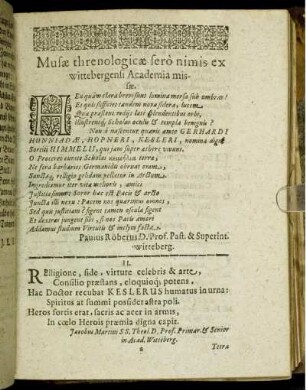 Musæ threnologicæ serò nimis ex
wittebergensi Academia mis-
sæ.
HEu quàm clara brevissimè lumina mersa sub umbris!
Et quis sufficiet tandem nova sidera, lucem,
Qua præstent meliùs late splendentibus orbi,
illustrentq; Scholas avitu & templa benignis?
Non è nascentur quanti ante GERHARDI
HUNNIADÆ, HOPNERI, KESLERI, nomina digna
Sortis HIMMELII, qui jam super æthere vivunt.
O Proceres cunctæ Scholas
Ne fera barbaries Germanidis obruat oram,
Sanctaq; relligio pridem pellitur in Arctum.
Impediemus iter vita melioris, amici
Justitiamq; Soror hæc est Pacis & arcta
Juncta illi nexu: Pacem nos quærimus omnes,
Sed quis justitiam? figent tamen oscula figent
Et dextras jungent sibi, si nos Pacis amori
Addamus studium Virtutis & inclyta facta.
Paulus Röberus D. Prof. Past. & Superint.
witteberg.
II.
RElligione, fide, virtute celebris & arte,
Consilio præstans, eloquioq; potens,
Hac Doctor recubat KESLERUS humatus in urna:
Spiritus at summi possidet astra poli.
Heros fortis erat, sacris ac acer in armis,
In cœlo Herois præmia digna capit.
Jacobus Martini SS. Theol. D. Prof. Primar. & Senior
in Acad. Witteberg.
Tetra